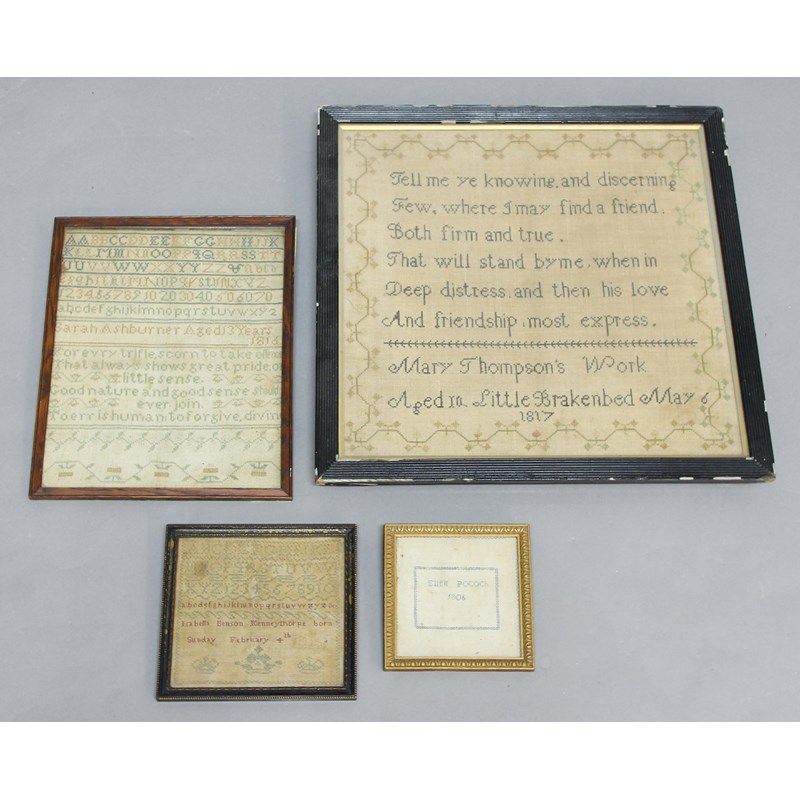 AABBCCDDEEEFFGGHHIIJJK
KLLMMNNOOPPQQRRSSTT
UUVVWWXXYYZZ&abcd
efghijklmnopqrstuvxyz
12345678910203040506070
abcdefghijklmnopqrstuvwxyz
Sarah Ashburner Aged 13 Years
1816
For evry trifle scorn to take
That always shows great pride, or
little sense
Good nature and good sense
ever join.
To err is human to forgive, divin
Tell me ye knowing, and discerning
Few, where I may find a friend,
Both firm and true,
That will stand by me, when in
Deep distress, and then his love
And friendship, most express.
Mary Thompson's Work
Aged 10 Little Brakenbed May 6
1817
abcdefghijklmnopqrstuvwxyz&
Isabella Kenneythorpe born
Sunday February 4th
POCOCK